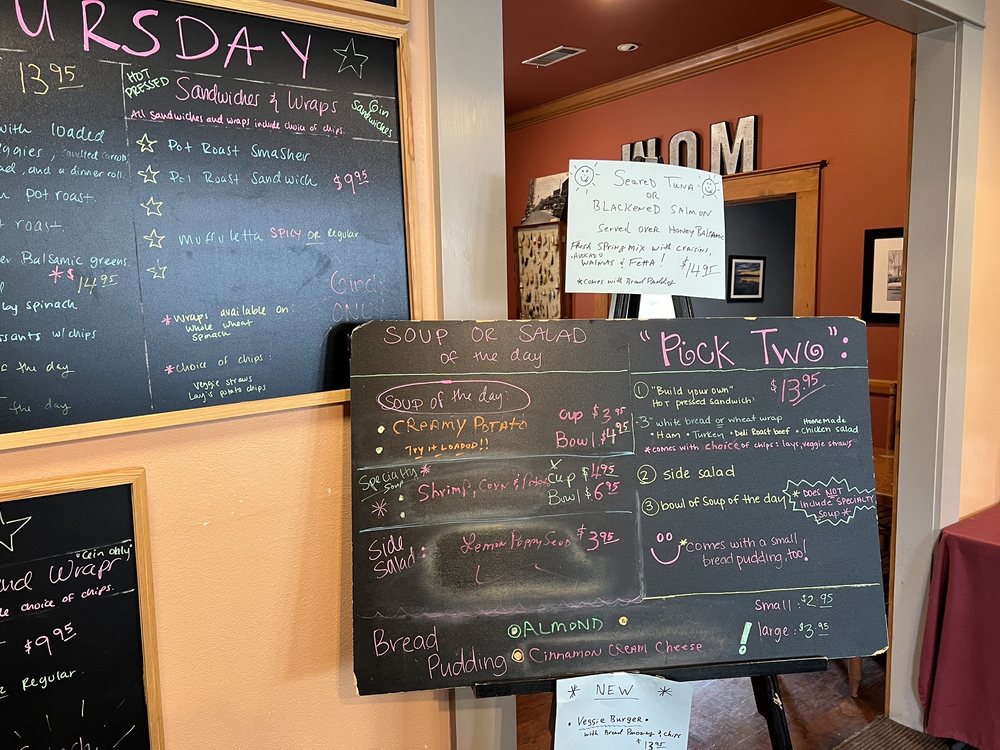 URSDAY
13.95
with loaded
ggies,
ad, and a dinner roll.
pot roast.
t roast.
er Balsamic greens.
*$14.95
spinach
ssants w/chips
f the day
the day
HOT PRESSED
Sandwiches & Wraps
6in Sandwiches
All sandwiches and wraps include choice of chips.
Pot Roast Smasher
Pot Roast Sandwich $9.95
Muffuletta SPICY OR Regular
*Wraps available on:
whole wheat
spinach
*choice of chips:
Veggie straws
Lay's potato chips
"6in only"
and Wrap
choice of chips.
$9.95
Regular
WOM
Seared Tuna
OR
Blackened Salmon
Served over Honey Balsamic
Fresh Spring Mix with craisins,
Walnuts & Fetta!
$14.95
*comes with Bread Pudding
SOUP OR SALAD
of the day
Soup of the day:
CREAMY POTATO
Try it LOADED!!
Cup $3.95
Bowl $4.95
Specialty Soup
Shrimp, Corn &
Cup $4.95
Bowl $6.95
Side Salad:
Lemon Poppy Seed $3.95
"Pick Two":
$13.95
1 "Build your own"
Hot pressed sandwich:
3" white bread or wheat wrap
• Ham • Turkey • Deli Roast beef • Homemade chicken salad
*comes with choice of chips: lays, veggie straws
2 side salad
3 bowl of soup of the day
*DOES NOT include SPECIALTY Soup*
*comes with a small
bread pudding, too!
Bread Pudding
ALMOND
Cinnamon CREAM CHEESE
small: $2.95
large: $3.95
* NEW *
• Veggie Burger •
with Bread Pudding & Chips
$13.95